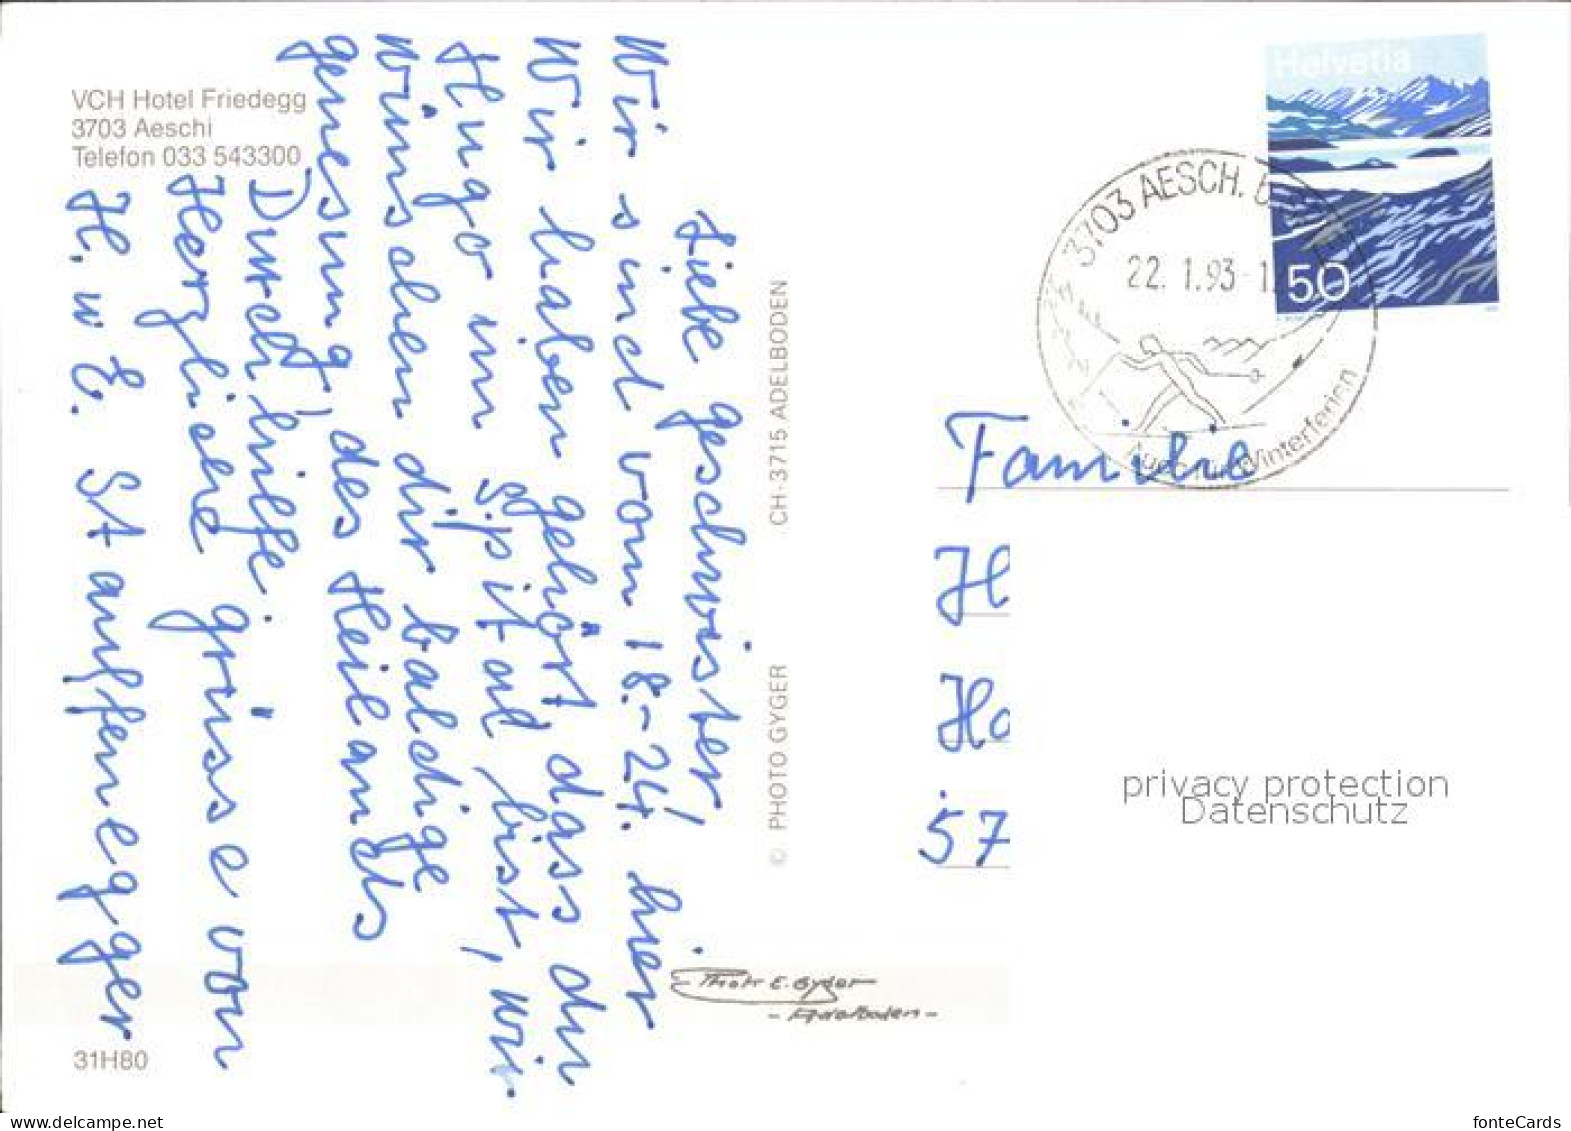 VCH Hotel Friedegg
3703 Aeschi
Telefon 033 543300
Liebe geschwister!
Wir sind vom 18.-24. hier
Wir haben gehört, dass du
Hugo im Spital bist, wir
wünschen dir baldige
genesung, des Heilands
Durchhilfe.
Herzliche grüsse von
H. u E. Stauffenegger
31H80
CH-3715 ADELBODEN
© PHOTO GYGER
Photo E. Gyger
- Adelboden -
Helvetia
50
3703 AESCH.
22. 1.93-1
Winterferien
Familie
H
Ho
57
privacy protection
Datenschutz
www.delcampe.net
fonteCards